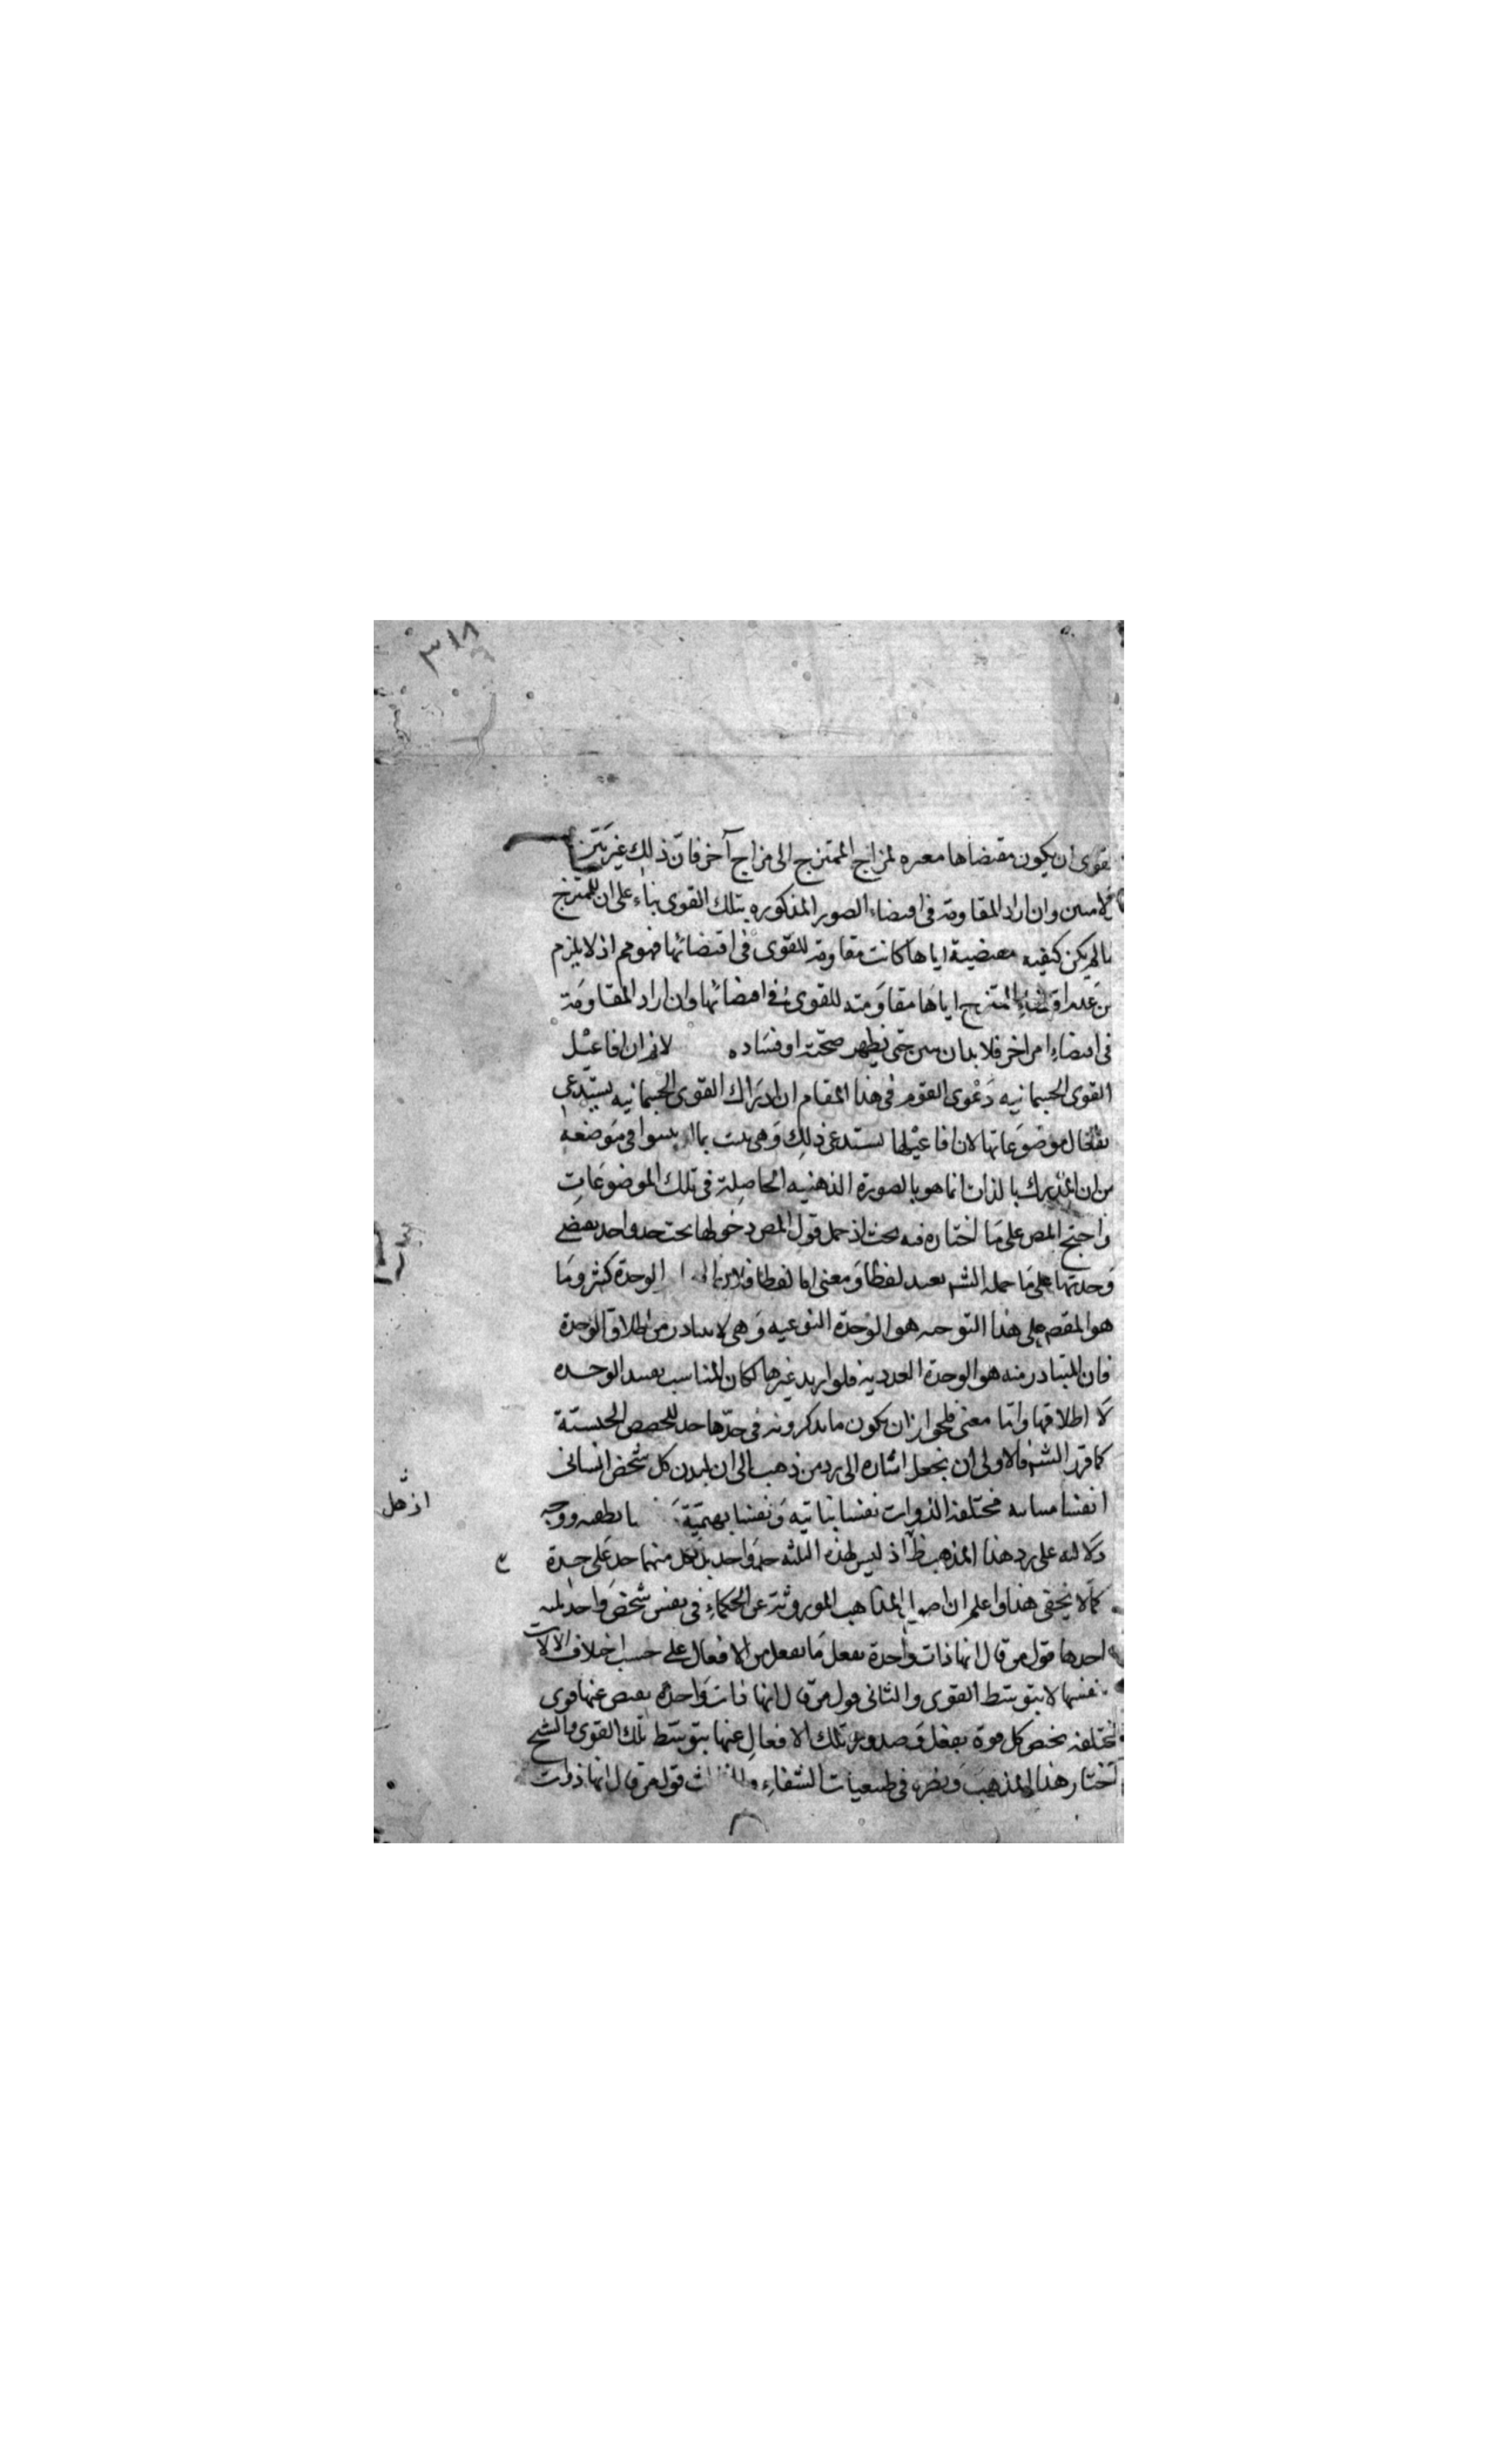 ٣١٨
القوى ان يكون مقتضاها مغيره لمزاج الممتزج الى مزاج آخر فانّ ذلك غير بيّن
ولا مبين وان اراد المقاومة فى اقتضاء الصور المذكوره بتلك القوى بناء على ان الممتزج
ما لم يكن كيفيه مقتضية اياها كانت مقاومة للقوى فى اقتضائها فهو مم اذ لا يلزم
من عدم اقتضاء الممتزج اياها مقاومته للقوى فى اقتضائها وان اراد المقاومة
فى اقتضاء امر اخر فلا بد ان يبين حتى يظهر صحّته او فساده لا لان افاعيل
القوى الجسمانيه دعوى القوم فى هذا المقام ان ادراك القوى الجسمانيه يستدعى
انفعال موضوعاتها لان افاعيلها يستدعى ذلك وهى بما فى موضعه
من ان المدرك بالذات انما هو بالصورة الذهنيه الحاصلة فى تلك الموضوعات
واحتج المص على ما اختاره فيه بحث اذ حمل قول المص دخولها تحت حد واحد يقتضى
وحدتها على ما حمله الشم بعيد لفظا ومعنى اما لفظا فلان الوحدة كثير وما
هو المقصم على هذا التوجيه هو الوحدة النوعيه وهى لا يتبادر من اطلاق الوحدة
فان المتبادر منه هو الوحدة العددية فلو اريد غيرها لكان المناسب تقييد الوحده
لا اطلاقها وامّا معنى فلجواز ان يكون ما يذكرونه فى حدّها حد للحصص الجنسيّة
كما قرر الشم فالاولى ان يجعل اشاره الى رد من ذهب الى ان لبدن كل شخص انسانى
انفسا متباينه مختلفة الذوات نفسا نباتيه ونفسا بهيميّة ناطقه ووجه
دلالته على رد هذا المذهب ظ اذ ليس لهذه الثلثه حد واحد بل لكل منهما حد على حدة
كما لا يخفى هذا واعلم ان اصول المذاهب الموروثة عن الحكماء فى نفس شخص واحد ثلثه
احدها قول من قال انها ذات واحدة يفعل ما يفعل من الافعال على حسب اختلاف الالات
بنفسها لا بتوسّط القوى والثانى قول من قال انها ذات واحدة يفيض عنها قوى
مختلفه يختص كل قوة بفعل وصدور تلك الافعال عنها بتوسّط تلك القوى والشيخ
اختار هذا المذهب ونصره فى طبيعيات الشفاء والثالث قول من قال انها ذوات
اذ هل